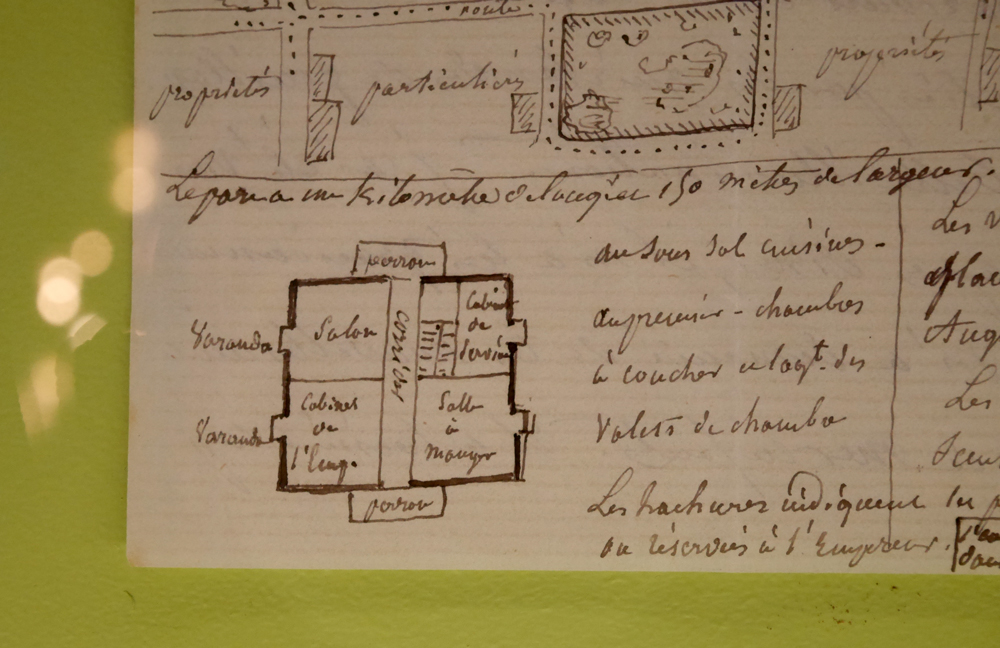 route
propriétés particuliers propriétés
Le parc a un kilomètre de long et 150 mètres de largeur.
perron
Salon
corridor
Cabinet
de
Service
Varanda
Cabinet
de
l'Emp.
Salle
à
Manger
Varanda
perron
au Sous Sol cuisines -
au premier - chambres
à coucher et logt. des
Valets de chambre
Les hachures indiquent les
ou réservées à l'Empereur.
Les
Les